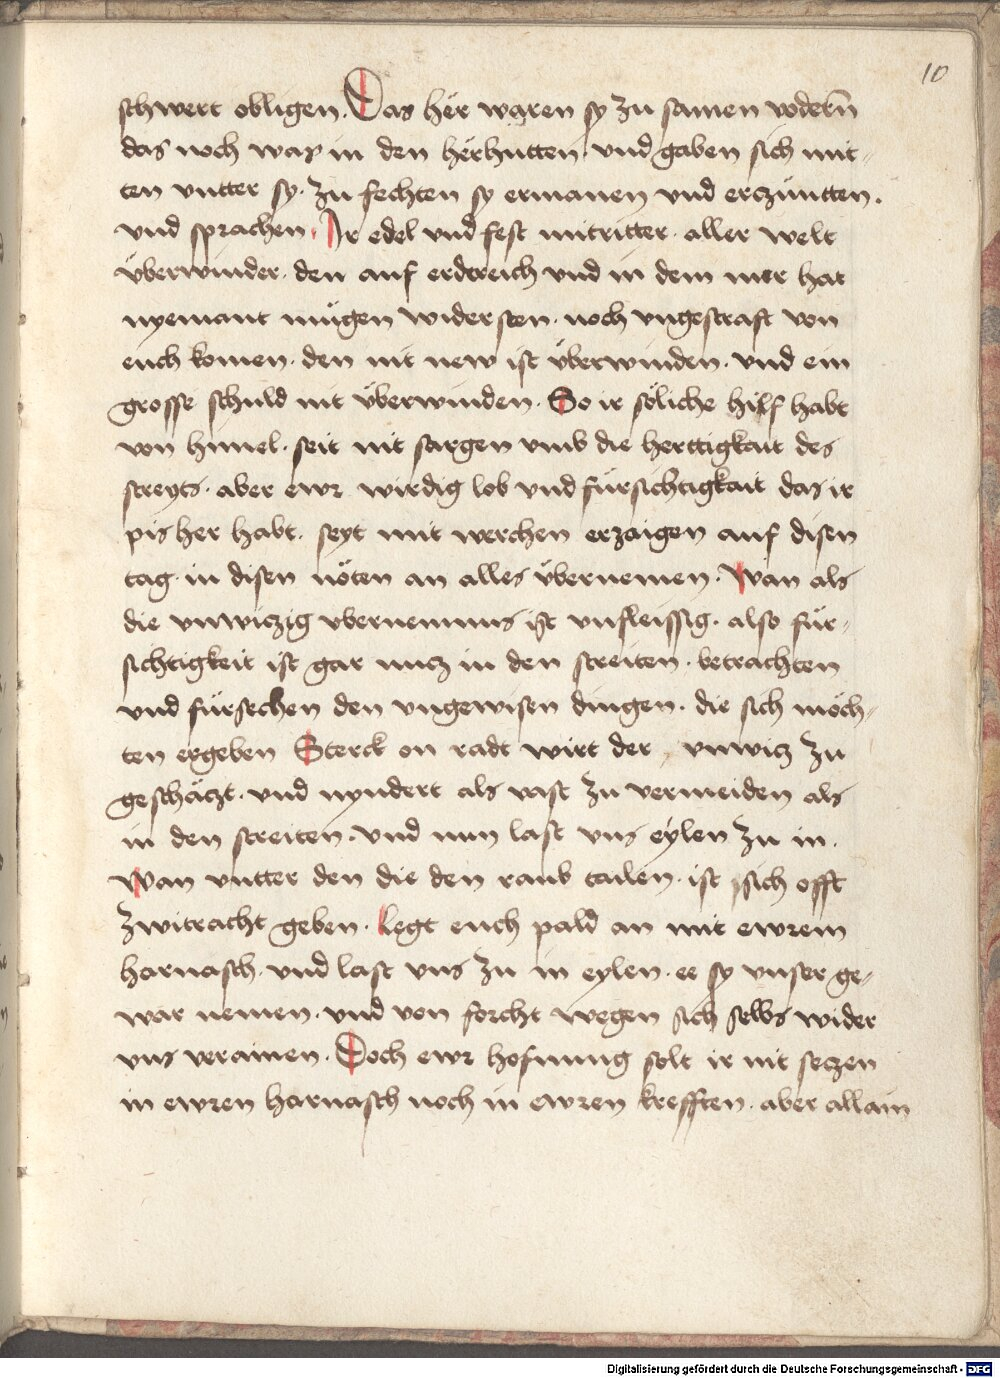 10
schwert obligen. Das hër waren sy zu samen vodern̄
das noch was in den hërhutten. vnd gaben sich mit-
ten vntter sy. zu fechten sy ermanen vnd erczüntten.
vnd sprachen. Ir edel vnd fest mitritter. aller welt
überwinder. den auf erdtreich vnd in dem mer hat
nyemant mügen widersten. noch vngestraft von
euch komen. den nit new ist überwinden. vnd ein
grosse schuld nit überwinden. So ir söliche hilf habt
von himel. seit nit sargen vmb die herttigkait des
streyts. aber ewr wirdig lob vnd fürsichtigkait das ir
pis her habt. seyt mit werchen erzaigen auf disen
tag. in disen nöten an alles übernemen. Wan als
die vnwiczig vbernemung ist vnfleissig. also für-
sichtigkeit ist gar nucz in den streiten. betrachten
vnd fürsechen den vngewisen dingen. die sich möch-
ten ergeben Sterck on radt wirt der vnwicz zu
geschäczt. vnd nyndert als vast zu vermeiden als
in den streiten. vnd nun last vns eylen zu in.
Wan vntter den die den raub tailen. ist sich offt
zwitracht geben. Legt euch pald an mit ewrem
harnasch. vnd last vns zu in eylen. ee sy vnser ge-
war nemen. vnd von forcht wegen sich selbs wider
vns verainen. Doch ewr hofnung solt ir nit seczen
in ewren harnasch noch in ewren krefften. aber allain
Digitalisierung gefördert durch die Deutsche Forschungsgemeinschaft - DFG